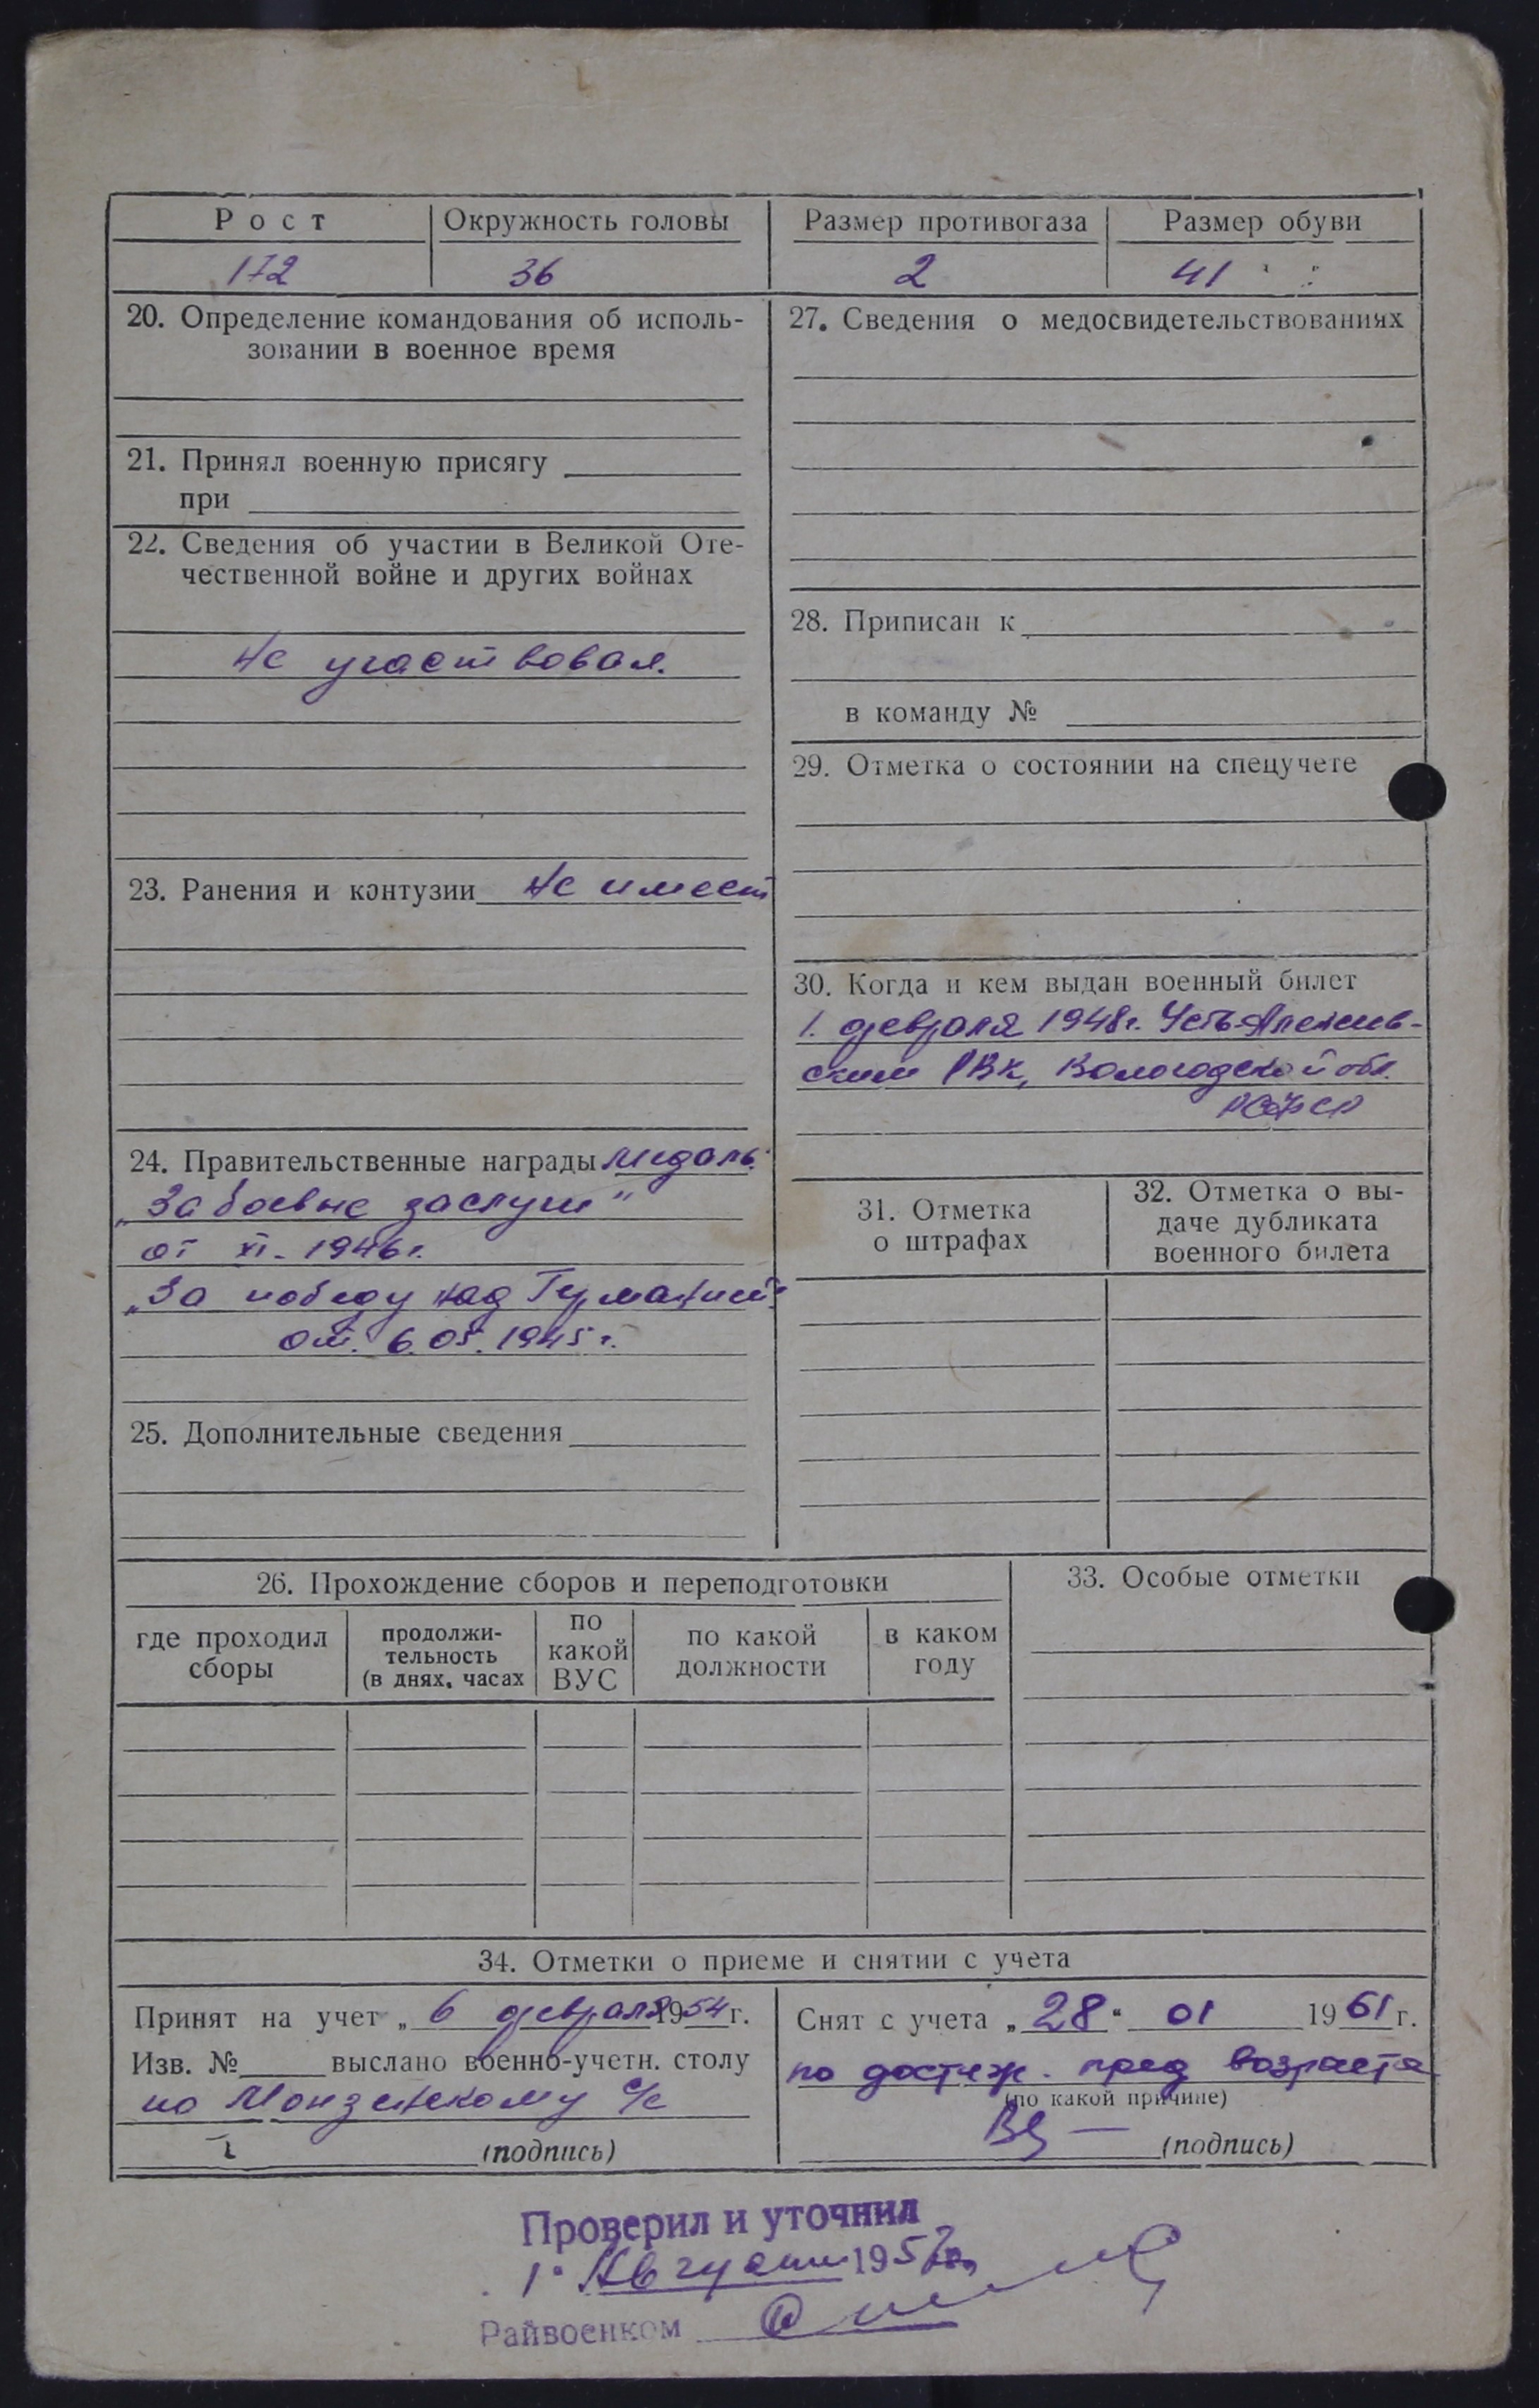 Рост Окружность головы Размер противогаза Размер обуви
172 36 2 41
20. Определение командования об исполь-
зовании в военное время
21. Принял военную присягу
при
22. Сведения об участии в Великой Оте-
чественной войне и других войнах
Не участвовал.
23. Ранения и контузии Не имеет
24. Правительственные награды медаль
„За боевые заслуги“
от XI-1946 г.
„За победу над Германией“
от 6.05.1945 г.
25. Дополнительные сведения
27. Сведения о медосвидетельствованиях
28. Приписан к
в команду №
29. Отметка о состоянии на спецучете
30. Когда и кем выдан военный билет
1. февраля 1948 г. Усть-Алексеев-
ским РВК, Вологодской обл.
РСФСР
31. Отметка
о штрафах
32. Отметка о вы-
даче дубликата
военного билета
26. Прохождение сборов и переподготовки
где проходил
сборы
продолжи-
тельность
(в днях, часах
по
какой
ВУС
по какой
должности
в каком
году
33. Особые отметки
34. Отметки о приеме и снятии с учета
Принят на учет „ 6 февраля 1954 г.
Изв. № выслано военно-учетн. столу
по Монзенскому с/с
(подпись)
Снят с учета „28“ 01 1961 г.
по достиж. пред возраста
(по какой причине)
(подпись)
Проверил и уточнил
1 Августа 1957 г.
Райвоенком